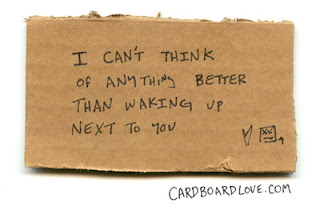 I CAN'T THINK
OF ANYTHING BETTER
THAN WAKING UP
NEXT TO YOU
CARDBOARDLOVE.COM